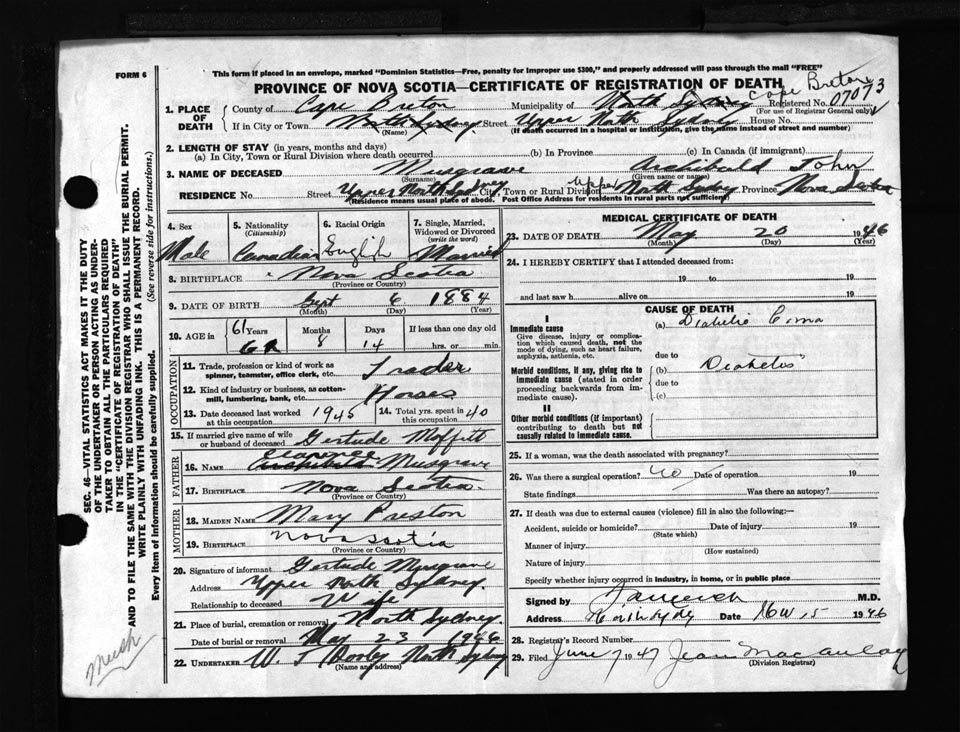 FORM 6
This form if placed in an envelope, marked "Dominion Statistics—Free, penalty for improper use $300," and properly addressed will pass through the mail "FREE"
PROVINCE OF NOVA SCOTIA—CERTIFICATE OF REGISTRATION OF DEATH
Cape Breton
1. PLACE OF DEATH County of Cape Breton Municipality of North Sydney Registered No. 07073
(For use of Registrar General only)
If in City or Town North Sydney Street Upper North Sydney House No.
(Name) (If death occurred in a hospital or institution, give the name instead of street and number)
2. LENGTH OF STAY (in years, months and days)
(a) In City, Town or Rural Division where death occurred (b) In Province (c) In Canada (if immigrant)
3. NAME OF DECEASED Musgrave Archibald John
(Surname) (Given name or names)
RESIDENCE No. Street Upper North Sydney City, Town or Rural Div. Upper North Sydney Province Nova Scotia
(Residence means usual place of abode. Post Office Address for residents in rural parts not sufficient)
4. Sex 5. Nationality (Citizenship) 6. Racial Origin 7. Single, Married, Widowed or Divorced (write the word)
Male Canadian English Married
8. BIRTHPLACE Nova Scotia
(Province or Country)
9. DATE OF BIRTH Sept 6 1884
(Month) (Day) (Year)
10. AGE in 61 Years Months Days If less than one day old
62 8 14 hrs. or min.
OCCUPATION
11. Trade, profession or kind of work as spinner, teamster, office clerk, etc. Trader
12. Kind of industry or business, as cotton-mill, lumbering, bank, etc. Horses
13. Date deceased last worked at this occupation 1945 14. Total yrs. spent in this occupation 40
15. If married give name of wife or husband of deceased Gertrude Moffitt
FATHER
16. NAME Clarence Archibald Musgrave
17. BIRTHPLACE Nova Scotia.
(Province or Country)
MOTHER
18. MAIDEN NAME Mary Preston
19. BIRTHPLACE Nova Scotia
(Province or Country)
20. Signature of informant Gertrude Musgrave
Address Upper North Sydney.
Relationship to deceased Wife
21. Place of burial, cremation or removal North Sydney.
Date of burial or removal May 23 1946
22. UNDERTAKER W. J. Dooley North Sydney
(Name and address)
MEDICAL CERTIFICATE OF DEATH
23. DATE OF DEATH May 20 1946
(Month) (Day) (Year)
24. I HEREBY CERTIFY that I attended deceased from:
19 to 19
and last saw h alive on 19
CAUSE OF DEATH
I
Immediate cause (a) Diabetic Coma
Give disease, injury or complication which caused death, not the mode of dying, such as heart failure, asphyxia, asthenia, etc.
due to
Morbid conditions, if any, giving rise to immediate cause (stated in order proceeding backwards from immediate cause).
(b) Diabetes
due to
(c)
II
Other morbid conditions (if important) contributing to death but not causally related to immediate cause.
25. If a woman, was the death associated with pregnancy?
26. Was there a surgical operation? no Date of operation 19
State findings Was there an autopsy?
27. If death was due to external causes (violence) fill in also the following:—
Accident, suicide or homicide? Date of injury 19
(State which)
Manner of injury
(How sustained)
Nature of injury
Specify whether injury occurred in industry, in home, or in public place
Signed by M.D.
Address North Sydney Date 15 1946
28. Registrar's Record Number
29. Filed June 7 1947 Jean MacAulay
(Division Registrar)
SEC. 46—VITAL STATISTICS ACT MAKES IT THE DUTY
OF THE UNDERTAKER OR PERSON ACTING AS UNDER-
TAKER TO OBTAIN ALL THE PARTICULARS REQUIRED
IN THE "CERTIFICATE OF REGISTRATION OF DEATH"
AND TO FILE THE SAME WITH THE DIVISION REGISTRAR WHO SHALL ISSUE THE BURIAL PERMIT.
WRITE PLAINLY WITH UNFADING INK. THIS IS A PERMANENT RECORD.
Every item of information should be carefully supplied. (See reverse side for instructions.)